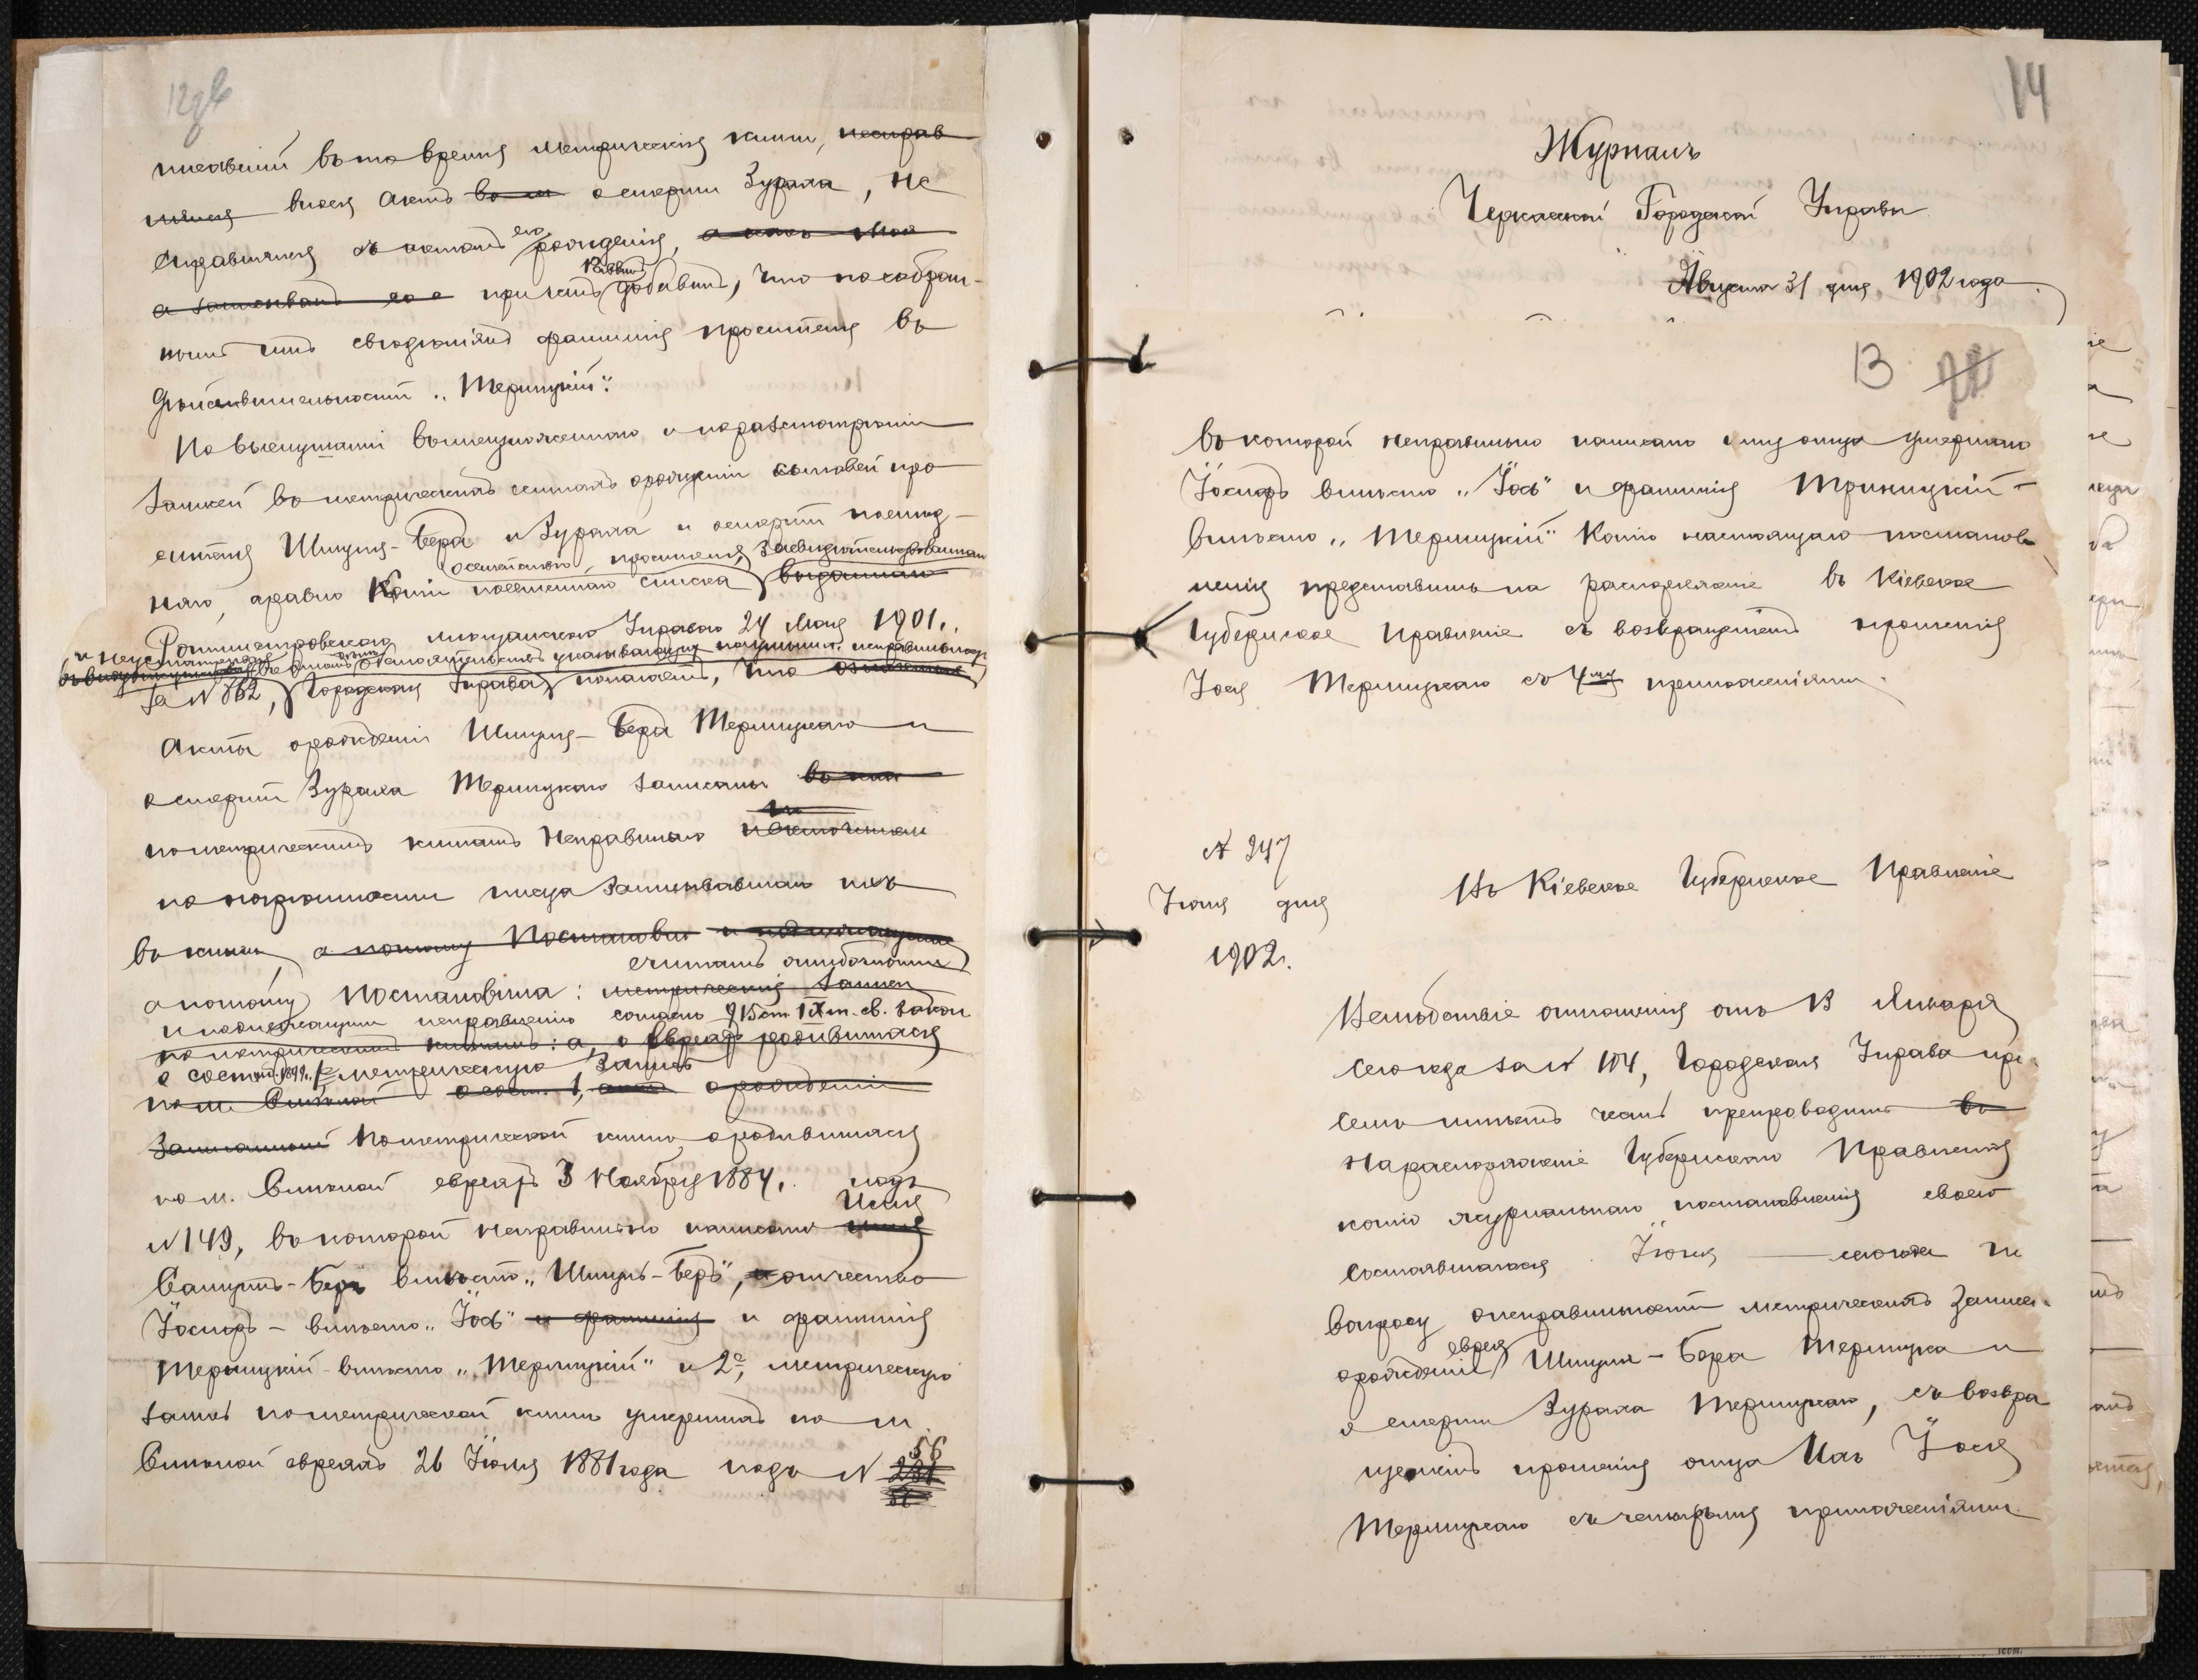 12об
писавшій въ то время метрическія книги, исправ
внося актъ о смерти Зурала, не
справился съ актомъ его рожденія,
при чемъ Раввинъ добавилъ, что по собран-
нымъ имъ свѣдѣніямъ фамилія просителя въ
дѣйствительности „Терлицкій".
По выслушаніи вышеизложеннаго и по разсмотрѣніи
записей въ метрическихъ книгахъ о рожденіи сыновей про
сителя Шмуля-Бера и Зурала и о смерти послѣд-
няго, а равно копіи посемейнаго списка
о семействѣ просителя, засвидѣтельствованнаго
выданнаго
Ротмистровскою мѣщанскою Управою 24 Мая 1901 г.
за № 862, Городская Управа полагаетъ, что
Акты о рожденіи Шмуля-Бера Терлицкаго и
о смерти Зурала Терлицкаго записаны
по метрическимъ книгамъ неправильно
по небрежности писца записывавшаго ихъ
въ книги, а потому Постановил и подлежащими
считать ошибочными
а потому Постановила: метрическія записи
и подлежащими исправленію согласно 915 ст. IX т. св. закон
по метрическимъ книгамъ: а, о евреяхъ родившихся
о сост. изд. 1899 г. 1е метрическую запись
о рожденіи
по метрической книгѣ о родившихся
по м. Смѣлой евреяхъ 3 Ноября 1884 г. подъ
№ 149, въ которой неправильно написано имя
Самуилъ-Беръ вмѣсто „Шмуль-Беръ", отчество
Іосифъ - вмѣсто „Іось" и фамилія и фамилія
Терницкій - вмѣсто „Терлицкій" и 2е, метрическую
запись по метрической книгѣ умершихъ по м.
Смѣлой евреяхъ 26 Іюля 1881 года подъ № 56
14
Журналъ
Черкасской Городской Управы
Августа 31 дня 1902 года
13
въ которой неправильно написано имя отца умершаго
Іосифъ вмѣсто „Іось" и фамилія Триницкій -
вмѣсто „Терлицкій" Копію настоящаго постанов
ленія представить на распоряженіе въ Кіевское
Губернское Правленіе съ возвращеніемъ прошенія
Іося Терлицкаго съ 4мя приложеніями.
№ 247
Іюля дня
1902 г.
Въ Кіевское Губернское Правленіе
Вслѣдствіе отношенія отъ 13 Января
сего года за № 104, Городская Управа при
семъ имѣетъ честь препроводить въ
на распоряженіе Губернскаго Правленія
копію журнальнаго постановленія своего
состоявшагося Іюля сего года по
вопросу о неправильности метрическихъ записей
о рожденіи еврея Шмуля-Бера Терлицка и
о смерти Зурала Терлицкаго, съ возвра
щеніемъ прошенія отца ихъ Іося
Терлицкаго съ четырьмя приложеніями.